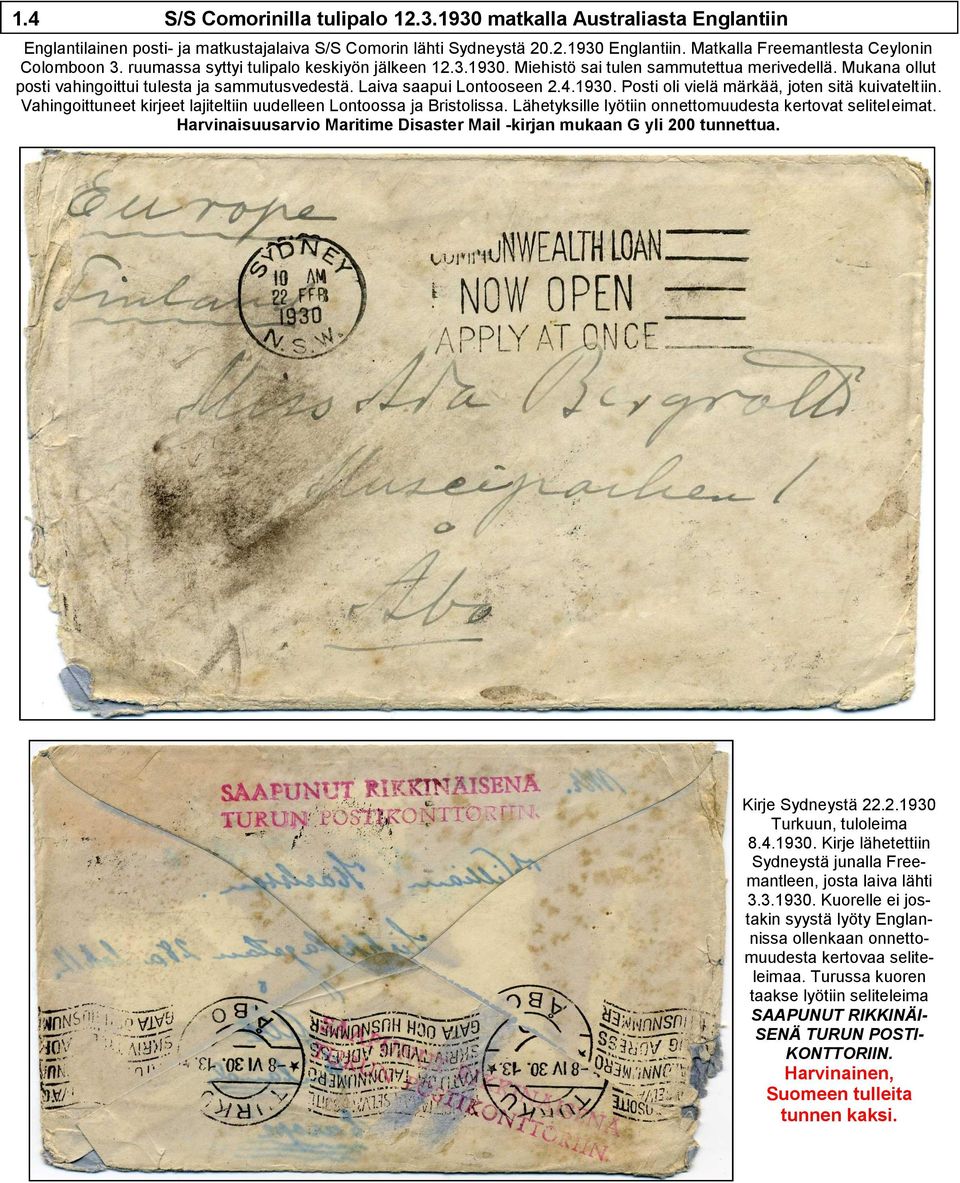 1.4 S/S Comorinilla tulipalo 12.3.1930 matkalla Australiasta Englantiin
Englantilainen posti- ja matkustajalaiva S/S Comorin lähti Sydneystä 20.2.1930 Englantiin. Matkalla Freemantlesta Ceylonin
Colomboon 3. ruumassa syttyi tulipalo keskiyön jälkeen 12.3.1930. Miehistö sai tulen sammutettua merivedellä. Mukana ollut
posti vahingoittui tulesta ja sammutusvedestä. Laiva saapui Lontooseen 2.4.1930. Posti oli vielä märkää, joten sitä kuivateltiin.
Vahingoittuneet kirjeet lajiteltiin uudelleen Lontoossa ja Bristolissa. Lähetyksille lyötiin onnettomuudesta kertovat seliteleimat.
Harvinaisuusarvio Maritime Disaster Mail -kirjan mukaan G yli 200 tunnettua.
Europe
Finland
SYDNEY
10 AM
22 FEB
1930
N.S.W.
COMMONWEALTH LOAN
NOW OPEN
APPLY AT ONCE
Miss Ada Bergroth
Museiparken 1
Åbo
SAAPUNUT RIKKINÄISENÄ
TURUN POSTIKONTTORIIN.
Kirje Sydneystä 22.2.1930
Turkuun, tuloleima
8.4.1930. Kirje lähetettiin
Sydneystä junalla Free-
mantleen, josta laiva lähti
3.3.1930. Kuorelle ei jos-
takin syystä lyöty Englan-
nissa ollenkaan onnetto-
muudesta kertovaa selite-
leimaa. Turussa kuoren
taakse lyötiin seliteleima
SAAPUNUT RIKKINÄI-
SENÄ TURUN POSTI-
KONTTORIIN.
Harvinainen,
Suomeen tulleita
tunnen kaksi.
ÅBO
-8 IV 30.-13.
TURKU
GATA OCH HUSNUMMER
ÅBO
-8 IV 30.-13
TURKU
SAAPUNUT RIKKINÄISENÄ
TURUN POSTIKONTTORIIN.